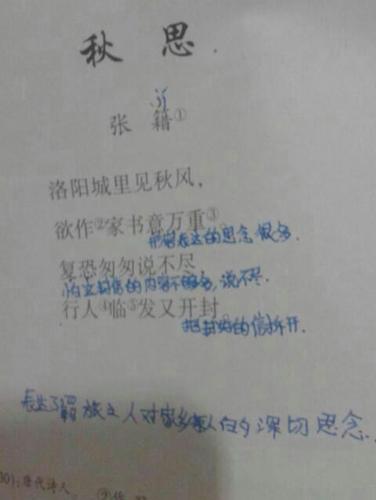 秋 思
jí
张 籍①
洛阳城里见秋风,
欲作②家书意万重③
形容表达的思念很多.
复恐匆匆说不尽
怕这封信的内容不够多,说不尽.
行人④临⑤发又开封
把封好的信拆开.
表达了 旅之人对家乡亲人的深切思念.
唐代诗人